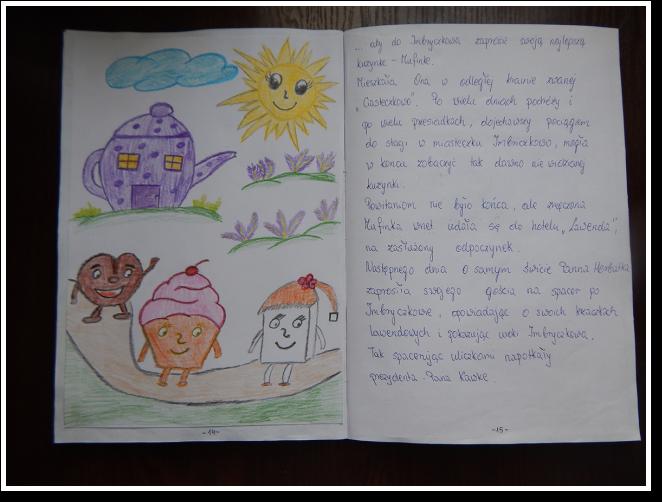 ... aby do Imbryczkowa zaprosić swoją najlepszą
kuzynkę - Mufinkę.
Mieszkała Ona w odległej krainie zwanej
„Ciasteczkowo". Po wielu dniach podróży i
po wielu przesiadkach, dojechawszy pociągiem
do stacji w miasteczku Imbryczkowo, mogła
w końcu zobaczyć tak dawno nie widzianą
kuzynkę.
Powitaniom nie było końca, ale zmęczona
Mufinka wnet udała się do hotelu „Lawenda",
na zasłużony odpoczynek.
Następnego dnia o samym świcie Panna Herbatka
zaprosiła swojego gościa na spacer po
Imbryczkowie, opowiadając o swoich krzaczkach
lawendowych i pokazując uroki Imbryczkowa.
Tak spacerując uliczkami napotkały
prezydenta - Pana Kawkę.
-14-
-15-